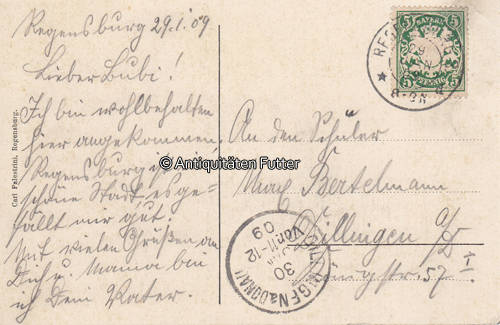 Regensburg 29.1.09
Lieber Bubi!
Ich bin wohlbehalten
hier angekommen.
Regensburg ist
schöne Stadt, es ge-
fällt mir gut.
Mit vielen Grüßen an
Dich u. Mama bin
ich Dein Vater.
Carl Palestrini, Regensburg.
© Antiquitäten Futter
BAYERN
5 5
5 5
PFENNIG
REG
8-9N
An den Schüler
Max Bertelmann
Dillingen a/D
Königstr. 57 I
DILLINGEN a. DONAU
30
JAN
Vor. 11-12
09